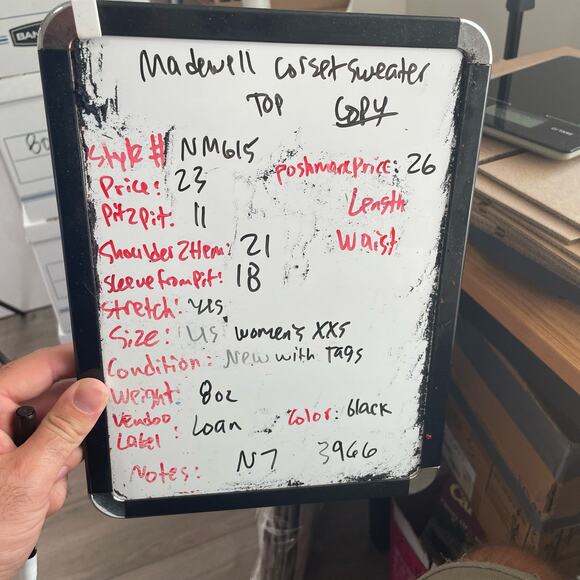 Madewell Corset Sweater
Top Copy
Style # NM615
Poshmark Price: 26
Price: 23
Length
Pit2Pit: 11
Waist
Shoulder2Hem: 21
Sleeve from Pit: 18
Stretch: yes
Size: US women's XXS
Condition: New with Tags
Weight: 8oz
Vendoo Label: Loan
Color: black
Notes: N7 3966
BAN
80